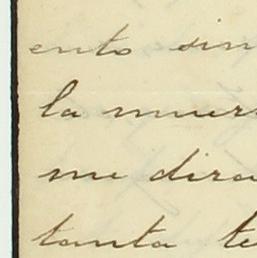 ento sin
la muer
me dira
tanta te